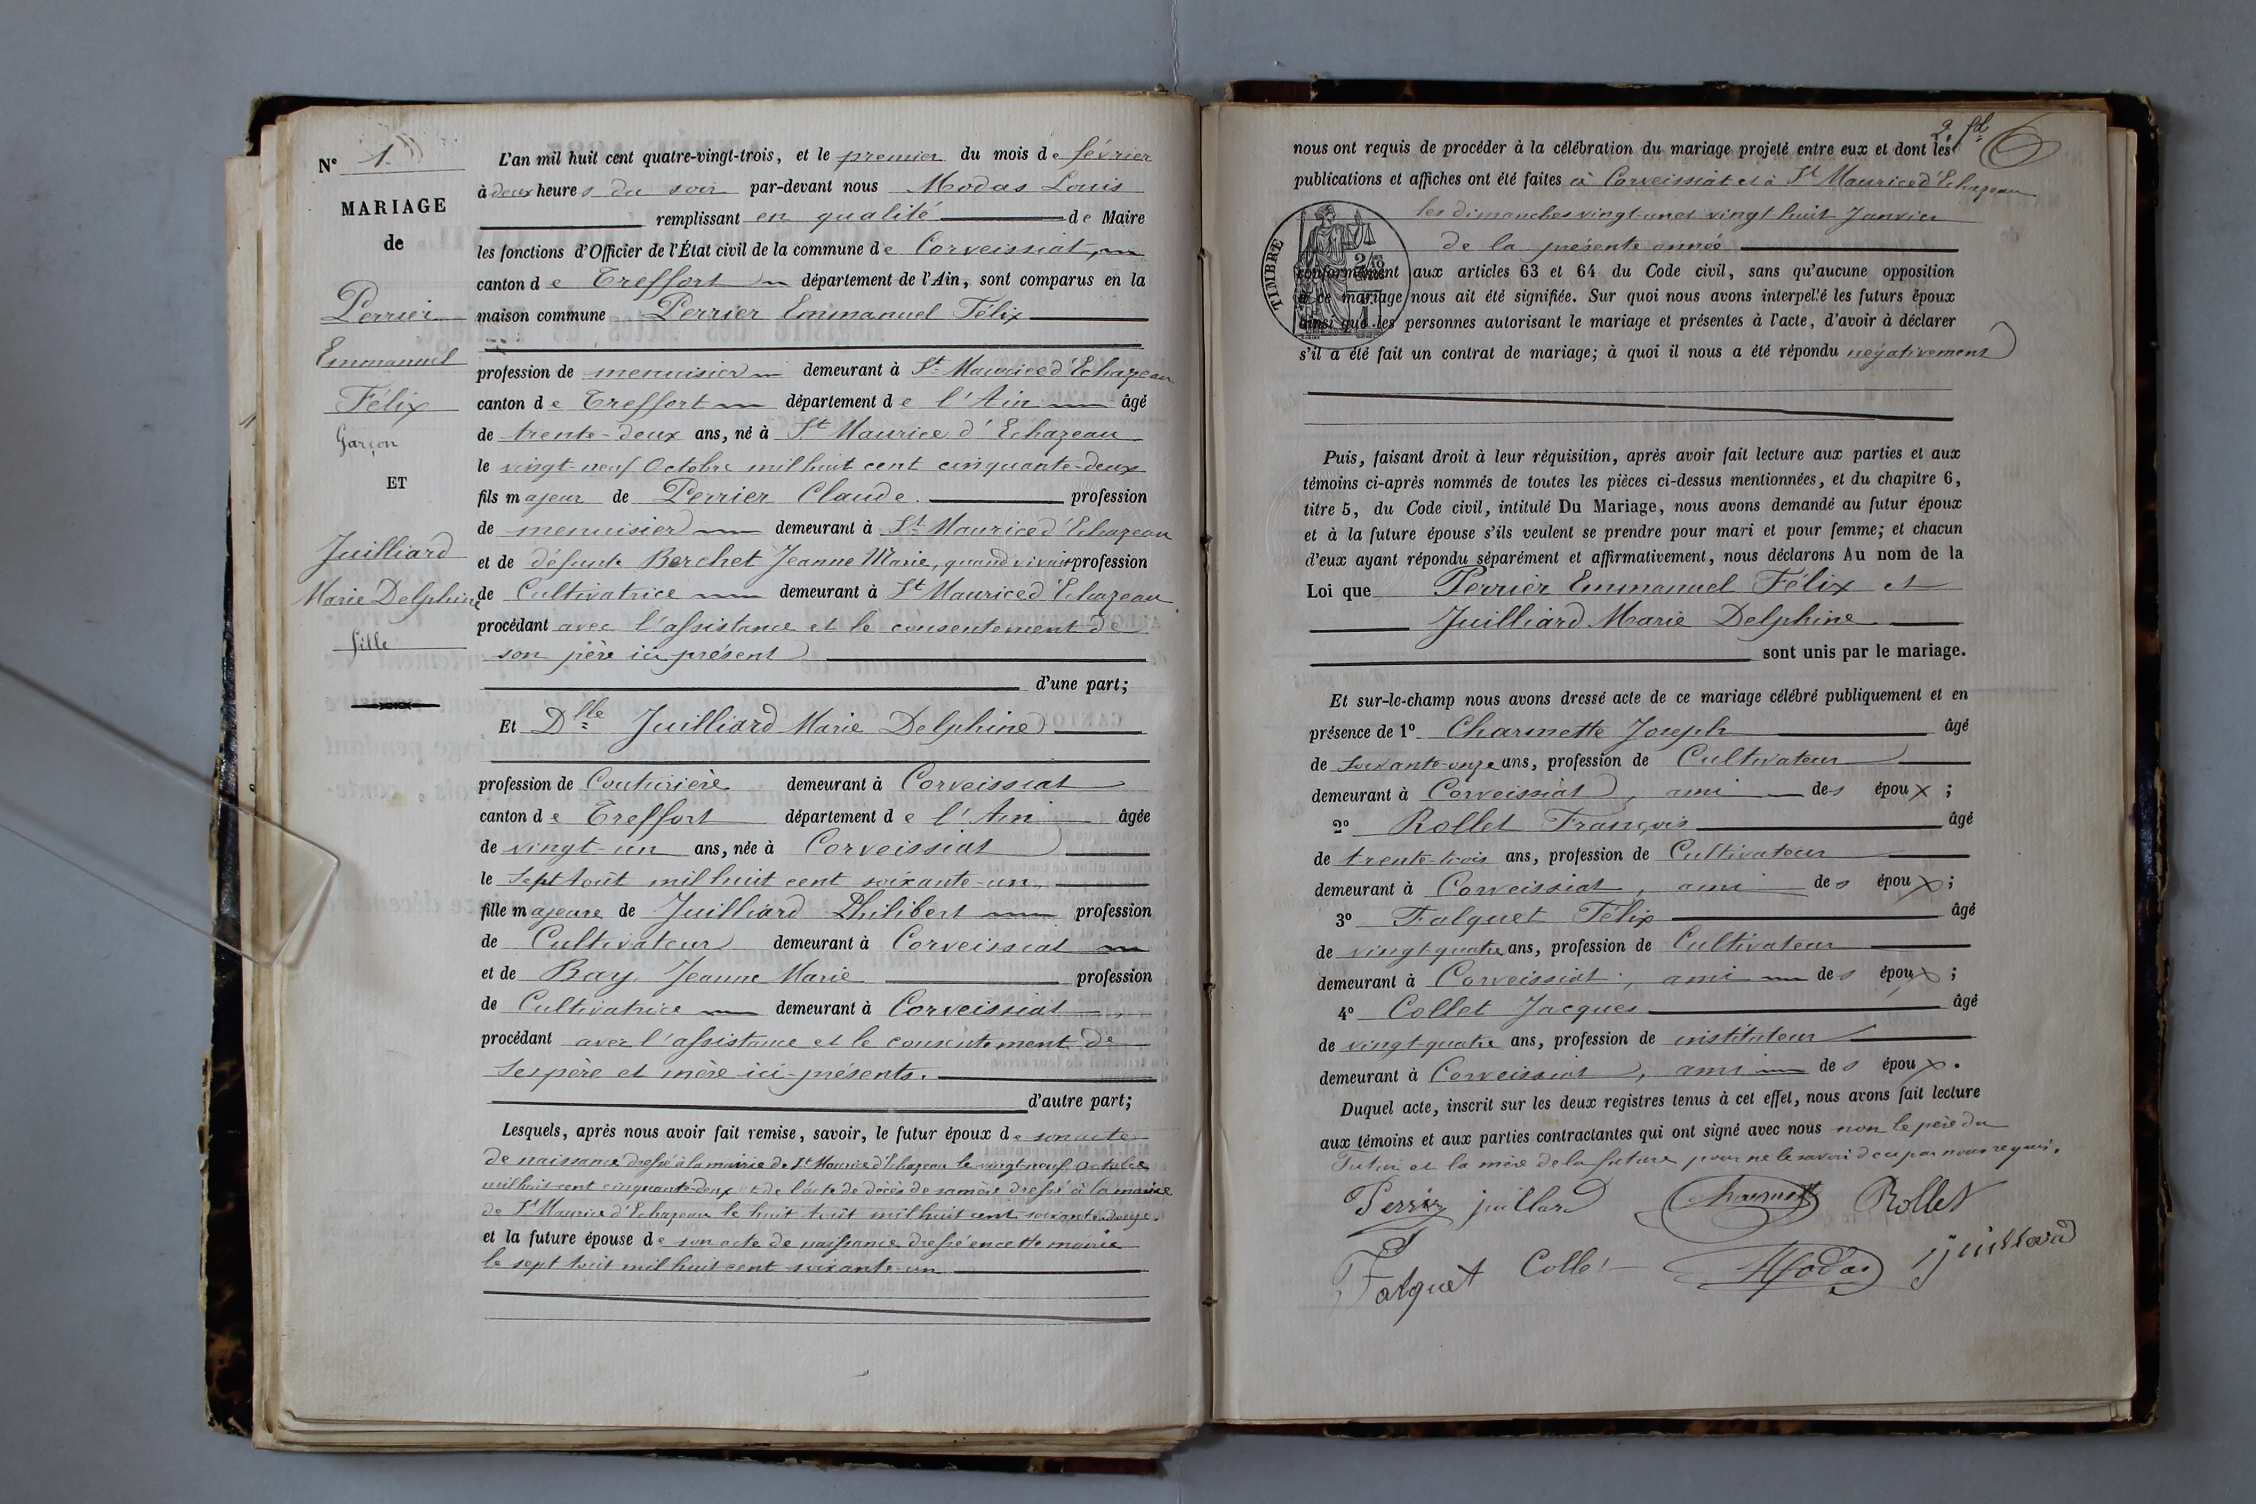 N° 1.
MARIAGE
de
Perrier
Emmanuel
Félix
Garçon
ET
Juilliard
Marie Delphine
fille
L'an mil huit cent quatre-vingt-trois, et le premier du mois de février
à deux heures du soir par-devant nous Modas Louis
remplissant en qualité de Maire
les fonctions d'Officier de l'État civil de la commune de Corveissiat,
canton de Treffort département de l'Ain, sont comparus en la
maison commune Perrier Emmanuel Félix
profession de menuisier demeurant à St Maurice d'Echazeau
canton de Treffort département de l'Ain âgé
de trente-deux ans, né à St Maurice d'Echazeau
le vingt-neuf Octobre mil huit cent cinquante-deux
fils majeur de Perrier Claude. profession
de menuisier demeurant à St Maurice d'Echazeau
et de défunte Berchet Jeanne Marie, quand vivait profession
de Cultivatrice demeurant à St Maurice d'Echazeau.
procédant avec l'assistance et le consentement de
son père ici présent
d'une part;
Et Dlle Juilliard Marie Delphine
profession de Couturière demeurant à Corveissiat
canton de Treffort département de l'Ain âgée
de vingt-un ans, née à Corveissiat
le sept Août mil huit cent soixante-un,
fille majeure de Juilliard Philibert profession
de Cultivateur demeurant à Corveissiat
et de Bay Jeanne Marie profession
de Cultivatrice demeurant à Corveissiat
procédant avec l'assistance et le consentement de
ses père et mère ici-présents.
d'autre part;
Lesquels, après nous avoir fait remise, savoir, le futur époux de son acte
de naissance dressé à la mairie de St Maurice d'Echazeau le vingt-neuf octobre
mil huit cent cinquante-deux et de l'acte de décès de sa mère dressé à la mairie
de St Maurice d'Echazeau le huit Août mil huit cent soixante-douze.
et la future épouse de son acte de naissance dressé en cette mairie
le sept Août mil huit cent soixante-un
2.
nous ont requis de procéder à la célébration du mariage projeté entre eux et dont les
publications et affiches ont été faites à Corveissiat et à St Maurice d'Echazeau
les dimanches vingt-un et vingt huit Janvier
de la présente année
TIMBRE
conformément aux articles 63 et 64 du Code civil, sans qu'aucune opposition
à ce mariage nous ait été signifiée. Sur quoi nous avons interpellé les futurs époux
ainsi que les personnes autorisant le mariage et présentes à l'acte, d'avoir à déclarer
s'il a été fait un contrat de mariage; à quoi il nous a été répondu négativement
Puis, faisant droit à leur réquisition, après avoir fait lecture aux parties et aux
témoins ci-après nommés de toutes les pièces ci-dessus mentionnées, et du chapitre 6,
titre 5, du Code civil, intitulé Du Mariage, nous avons demandé au futur époux
et à la future épouse s'ils veulent se prendre pour mari et pour femme; et chacun
d'eux ayant répondu séparément et affirmativement, nous déclarons Au nom de la
Loi que Perrier Emmanuel Félix et
Juilliard Marie Delphine
sont unis par le mariage.
Et sur-le-champ nous avons dressé acte de ce mariage célébré publiquement et en
présence de 1° Charmette Joseph âgé
de soixante-onze ans, profession de Cultivateur
demeurant à Corveissiat, ami des époux;
2° Rollet François âgé
de trente-trois ans, profession de Cultivateur
demeurant à Corveissiat, ami des époux;
3° Falquet Félix âgé
de vingt-quatre ans, profession de Cultivateur
demeurant à Corveissiat, ami des époux;
4° Collet Jacques âgé
de vingt-quatre ans, profession de instituteur
demeurant à Corveissiat, ami des époux.
Duquel acte, inscrit sur les deux registres tenus à cet effet, nous avons fait lecture
aux témoins et aux parties contractantes qui ont signé avec nous non le père du
futur et la mère de la future pour ne le savoir de ce par nous requis.
Perrier juillard Charmette Rollet
Falquet Collet Modas juillard